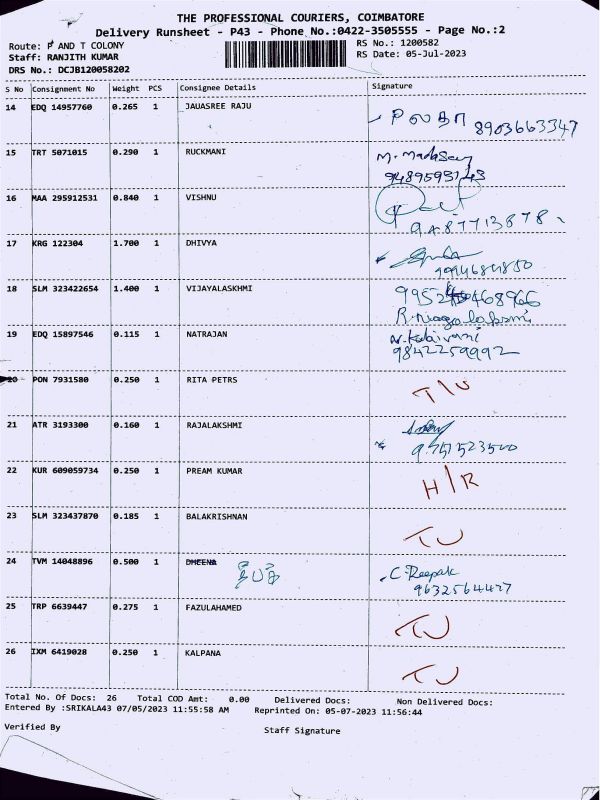 THE PROFESSIONAL COURIERS, COIMBATORE
Delivery Runsheet - P43 - Phone No.:0422-3505555 - Page No.:2
Route: P AND T COLONY RS No.: 1200582
Staff: RANJITH KUMAR RS Date: 05-Jul-2023
DRS No.: DCJB120058202
S No Consignment No Weight PCS Consignee Details Signature
14 EDQ 14957760 0.265 1 JAUASREE RAJU
8903663347
15 TRT 5071015 0.290 1 RUCKMANI
16 MAA 295912531 0.840 1 VISHNU
9487713878
17 KRG 122304 1.700 1 DHIVYA
18 SLM 323422654 1.400 1 VIJAYALASKHMI
19 EDQ 15897546 0.115 1 NATRAJAN
9842259992
20 PON 7931580 0.250 1 RITA PETRS
T/U
21 ATR 3193300 0.160 1 RAJALAKSHMI
22 KUR 609059734 0.250 1 PREAM KUMAR
H/R
23 SLM 323437870 0.185 1 BALAKRISHNAN
TU
24 TVM 14048896 0.500 1 DHEENA
C. Deepak
25 TRP 6639447 0.275 1 FAZULAHAMED
TU
26 IXM 6419028 0.250 1 KALPANA
TU
Total No. Of Docs: 26 Total COD Amt: 0.00 Delivered Docs: Non Delivered Docs:
Entered By :SRIKALA43 07/05/2023 11:55:58 AM Reprinted On: 05-07-2023 11:56:44
Verified By Staff Signature